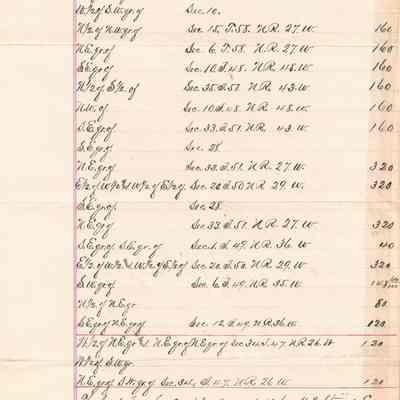 W½ of S.W. qr of Sec. 10.
W½ of N.W. qr of Sec. 15. T. 58. N.R. 27. W. 160
N.E. qr of Sec. 6. T. 58. N.R. 27. W. 160
S.E. qr of Sec. 10. T. 48. N.R. 48. W. 160
N½ of S½ of Sec. 35. T. 51. N.R. 43. W. 160
N.W. of Sec. 10. T. 48. N.R. 48. W. 160
S.E. qr of Sec. 33. T. 51. N.R. 43. W. 160
S.E. qr of Sec. 28.
N.E. qr of Sec. 33. T. 51. N.R. 27. W. 320
E½ of W½ & W½ of E½ of Sec. 20. T. 50. N.R. 29. W. 320
S.E. qr of Sec. 28.
N.E. qr of Sec. 33. T. 51. N.R. 27. W. 320
S.E. qr of S.E. qr. of Sec. 1. T. 49. N.R. 36. W. 40
E½ of W½ & W½ of E½ of Sec. 20. T. 50. N.R. 29. W. 320
S.W. qr of Sec. 6. T. 49. N.R. 35. W. 148
W½ of N.E. qr 80
S.E. qr of N.E. qr of Sec. 12. T. 49. N.R. 36. W. 120
W½ of N.E. qr & N.E. qr of N.E. qr of Sec. 34. T. 47. N.R. 26. W 120
W½ of S.W. qr.
N.E. qr of S.W. qr of Sec. 34. T. 47. N.R. 26 W 120